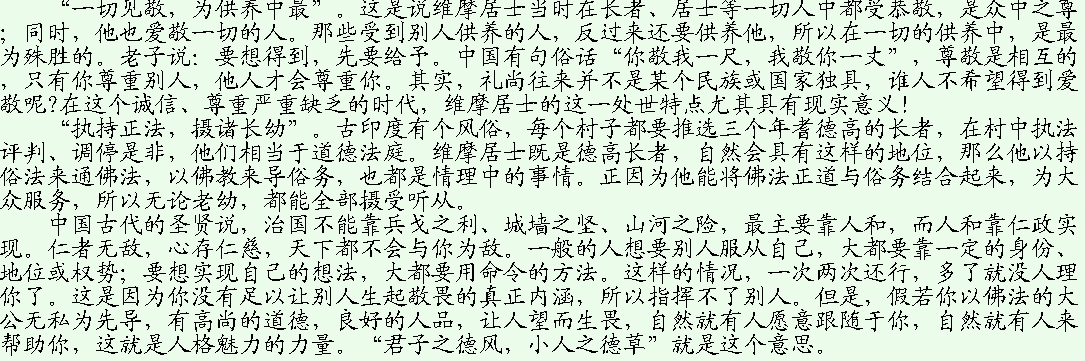 “一切见敬，为供养中最”。这是说维摩居士当时在长者、居士等一切人中都受恭敬，是众中之尊
；同时，他也爱敬一切的人。那些受到别人供养的人，反过来还要供养他，所以在一切的供养中，是最
为殊胜的。老子说：要想得到，先要给予。中国有句俗话“你敬我一尺，我敬你一丈”，尊敬是相互的
，只有你尊重别人，他人才会尊重你。其实，礼尚往来并不是某个民族或国家独具，谁人不希望得到爱
敬呢?在这个诚信、尊重严重缺乏的时代，维摩居士的这一处世特点尤其具有现实意义！
“执持正法，摄诸长幼”。古印度有个风俗，每个村子都要推选三个年耆德高的长者，在村中执法
评判、调停是非，他们相当于道德法庭。维摩居士既是德高长者，自然会具有这样的地位，那么他以持
俗法来通佛法，以佛教来导俗务，也都是情理中的事情。正因为他能将佛法正道与俗务结合起来，为大
众服务，所以无论老幼，都能全部摄受听从。
中国古代的圣贤说，治国不能靠兵戈之利、城墙之坚、山河之险，最主要靠人和，而人和靠仁政实
现。仁者无敌，心存仁慈，天下都不会与你为敌。一般的人想要别人服从自己，大都要靠一定的身份、
地位或权势；要想实现自己的想法，大都要用命令的方法。这样的情况，一次两次还行，多了就没人理
你了。这是因为你没有足以让别人生起敬畏的真正内涵，所以指挥不了别人。但是，假若你以佛法的大
公无私为先导，有高尚的道德，良好的人品，让人望而生畏，自然就有人愿意跟随于你，自然就有人来
帮助你，这就是人格魅力的力量。“君子之德风，小人之德草”就是这个意思。